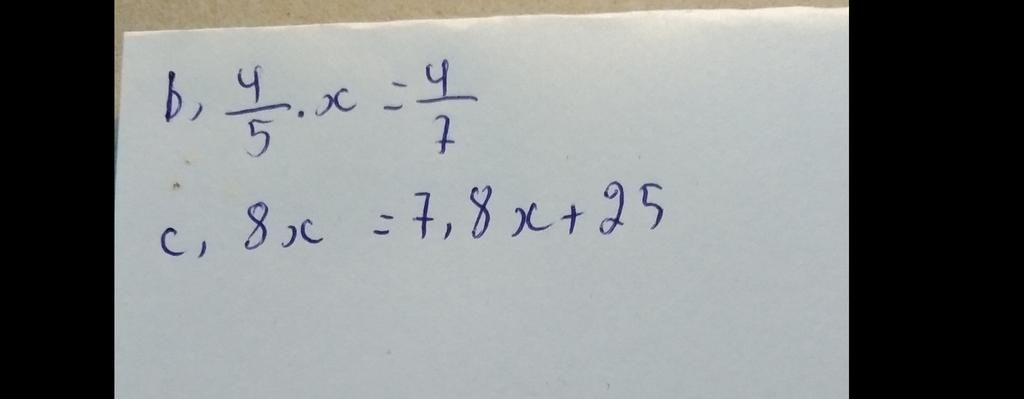 b, 4/5 . x = 4/7
c, 8x = 7,8x + 25